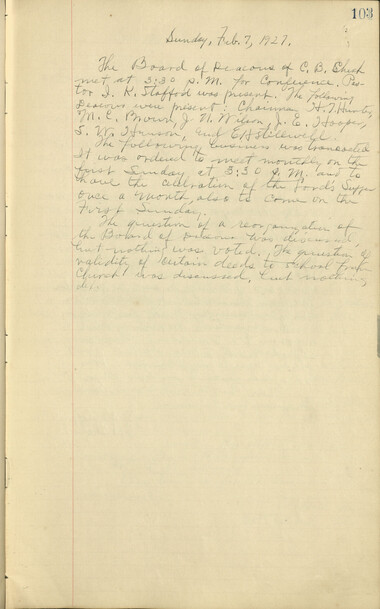 103
Sunday, Feb. 7, 1927.
The Board of Deacons of C. B. Church
met at 3:30 P.M. for Conference, Pas-
tor J. K. Stafford was present. The following
Deacons were present: Chairman H. T. Hunter,
M. E. Brown, J. N. Wilson, J. E. Hooper,
S. W. and E H Stillwell.
The following business was transacted
It was ordered to meet monthly on the
first Sunday at 3:30 P.M. and to
have the of the Lord's Supper
once a month, also to come on the
First Sunday.
The question of a reorganization of
the Board of Deacons was discussed
but nothing was voted. The question of
validity of certain deeds to school from
Church was discussed, but nothing